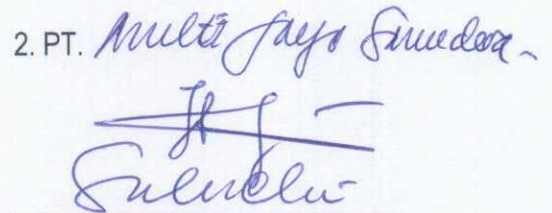 2. PT. Multi Jaya Samudera